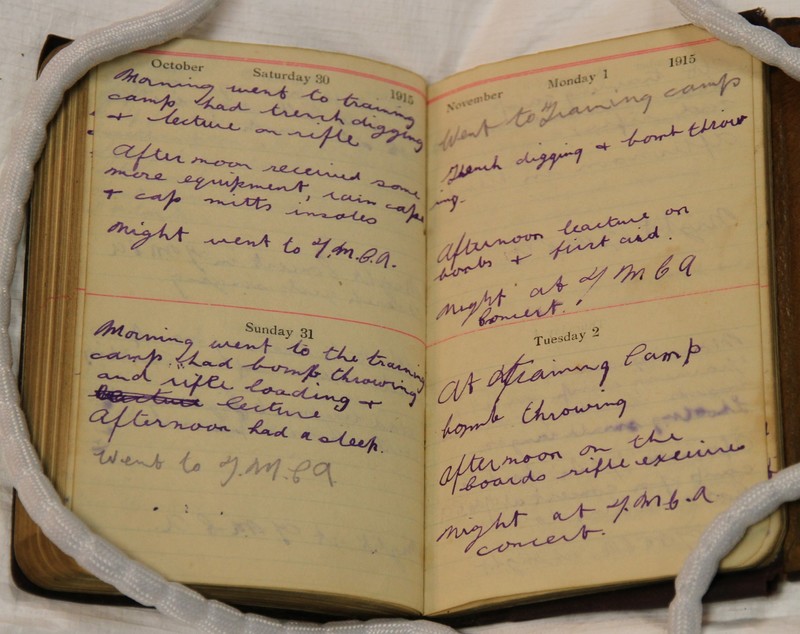 October Saturday 30 1915
Morning went to training
camp had trench digging
+ lecture on rifle
After noon received some
more equipment, rain cape
+ cap mitts insoles
Night went to Y.M.C.A.
Sunday 31
Morning went to the training
camp had bomb throwing
and rifle loading +
lecture
Afternoon had a sleep.
Went to Y.M.C.A
November Monday 1 1915
Went to Training camp
Trench digging + bomb throw
ing.
Afternoon leacture on
bombs + first aid.
Night at Y M C A
Concert.
Tuesday 2
At Training Camp
bomb throwing
Afternoon on the
boards rifle exercises
Night at Y.M.C.A
concert.